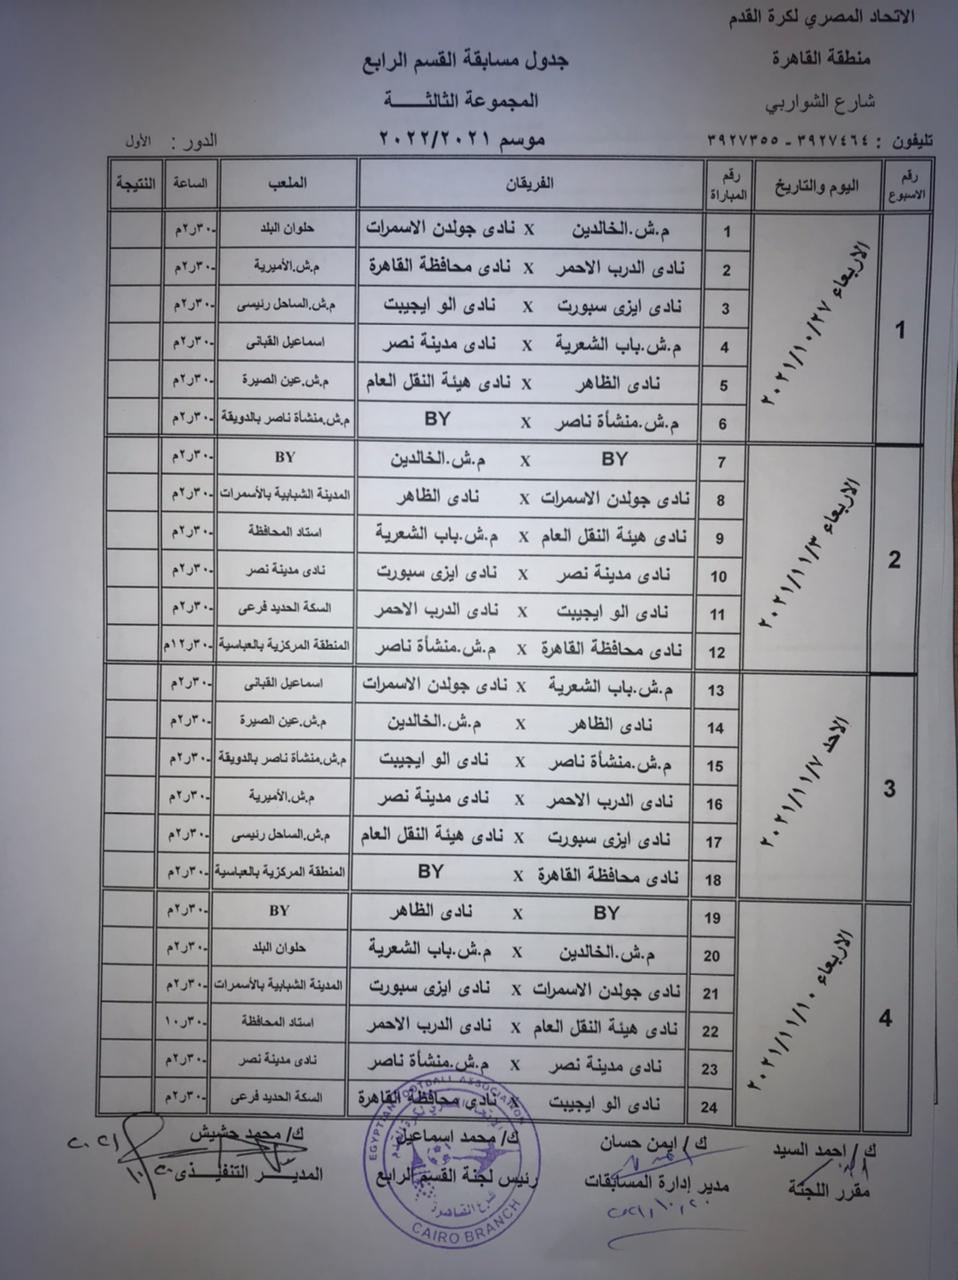 الاتحاد المصري لكرة القدم
منطقة القاهرة
جدول مسابقة القسم الرابع
شارع الشواربي
المجموعة الثالثـــــة
تليفون : ٣٩٢٧٤٦٤ - ٣٩٢٧٣٥٥
موسم ٢٠٢٢/٢٠٢١
الدور : الأول
رقم الاسبوع اليوم والتاريخ رقم المباراة الفريقان الملعب الساعة النتيجة
1 الاربعاء ٢٠٢١/١٠/٢٧
1 م.ش.الخالدين x نادى جولدن الاسمرات حلوان البلد ٢٫٣٠م
2 نادى الدرب الاحمر x نادى محافظة القاهرة م.ش.الأميرية ٢٫٣٠م
3 نادى ايزى سبورت x نادى الو ايجيبت م.ش.الساحل رئيسى ٢٫٣٠م
4 م.ش.باب الشعرية x نادى مدينة نصر اسماعيل القبانى ٢٫٣٠م
5 نادى الظاهر x نادى هيئة النقل العام م.ش.عين الصيرة ٢٫٣٠م
6 م.ش.منشأة ناصر x BY م.ش.منشأة ناصر بالدويقة ٢٫٣٠م
2 الاربعاء ٢٠٢١/١١/٣
7 BY x م.ش.الخالدين BY ٢٫٣٠م
8 نادى جولدن الاسمرات x نادى الظاهر المدينة الشبابية بالأسمرات ٢٫٣٠م
9 نادى هيئة النقل العام x م.ش.باب الشعرية استاد المحافظة ٢٫٣٠م
10 نادى مدينة نصر x نادى ايزى سبورت نادى مدينة نصر ٢٫٣٠م
11 نادى الو ايجيبت x نادى الدرب الاحمر السكة الحديد فرعى ٢٫٣٠م
12 نادى محافظة القاهرة x م.ش.منشأة ناصر المنطقة المركزية بالعباسية ١٢٫٣٠م
3 الاحد ٢٠٢١/١١/٧
13 م.ش.باب الشعرية x نادى جولدن الاسمرات اسماعيل القبانى ٢٫٣٠م
14 نادى الظاهر x م.ش.الخالدين م.ش.عين الصيرة ٢٫٣٠م
15 م.ش.منشأة ناصر x نادى الو ايجيبت م.ش.منشأة ناصر بالدويقة ٢٫٣٠م
16 نادى الدرب الاحمر x نادى مدينة نصر م.ش.الأميرية ٢٫٣٠م
17 نادى ايزى سبورت x نادى هيئة النقل العام م.ش.الساحل رئيسى ٢٫٣٠م
18 نادى محافظة القاهرة x BY المنطقة المركزية بالعباسية ٢٫٣٠م
4 الاربعاء ٢٠٢١/١١/١٠
19 BY x نادى الظاهر BY ٢٫٣٠م
20 م.ش.الخالدين x م.ش.باب الشعرية حلوان البلد ٢٫٣٠م
21 نادى جولدن الاسمرات x نادى ايزى سبورت المدينة الشبابية بالأسمرات ٢٫٣٠م
22 نادى هيئة النقل العام x نادى الدرب الاحمر استاد المحافظة ١٠٫٣٠
23 نادى مدينة نصر x م.ش.منشأة ناصر نادى مدينة نصر ٢٫٣٠م
24 نادى الو ايجيبت x نادى محافظة القاهرة السكة الحديد فرعى ٢٫٣٠م
ك/ احمد السيد ك / ايمن حسان ك/ محمد اسماعيل ك/ محمد حشيش
مقرر اللجنة مدير إدارة المسابقات رئيس لجنة القسم الرابع المديـــر التنفيـــذى
EGYPTIAN FOOTBALL ASSOCIATION
CAIRO BRANCH